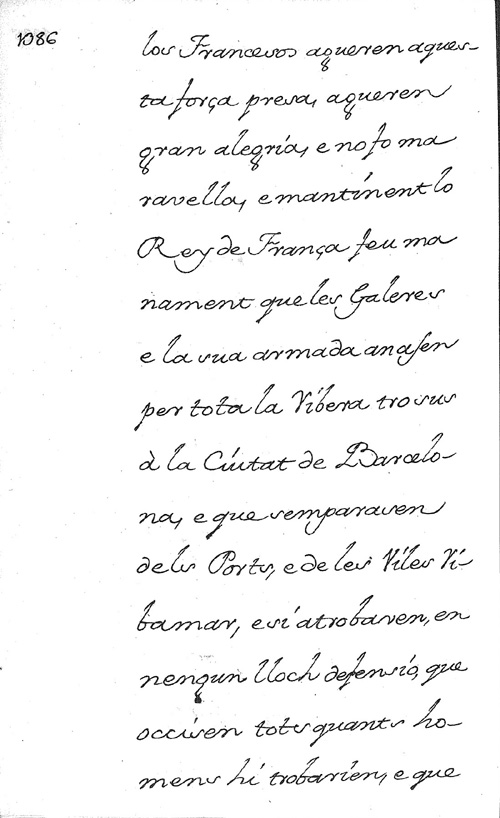 1086
los Francesos agueren aques-
ta força presa, agueren
gran alegria, e no fo ma
ravella, e mantinent lo
Rey de França feu ma
nament que les Galeres
e la sua armada anasen
per tota la Ribera tro sus
à la Ciutat de Barcelo-
na, e que semparasen
dels Ports, e de les Viles Ri-
bamar, e si atrobaven, en
nengun lloch defensió, que
occisen tots quants ho-
mens hi trobarien, e que